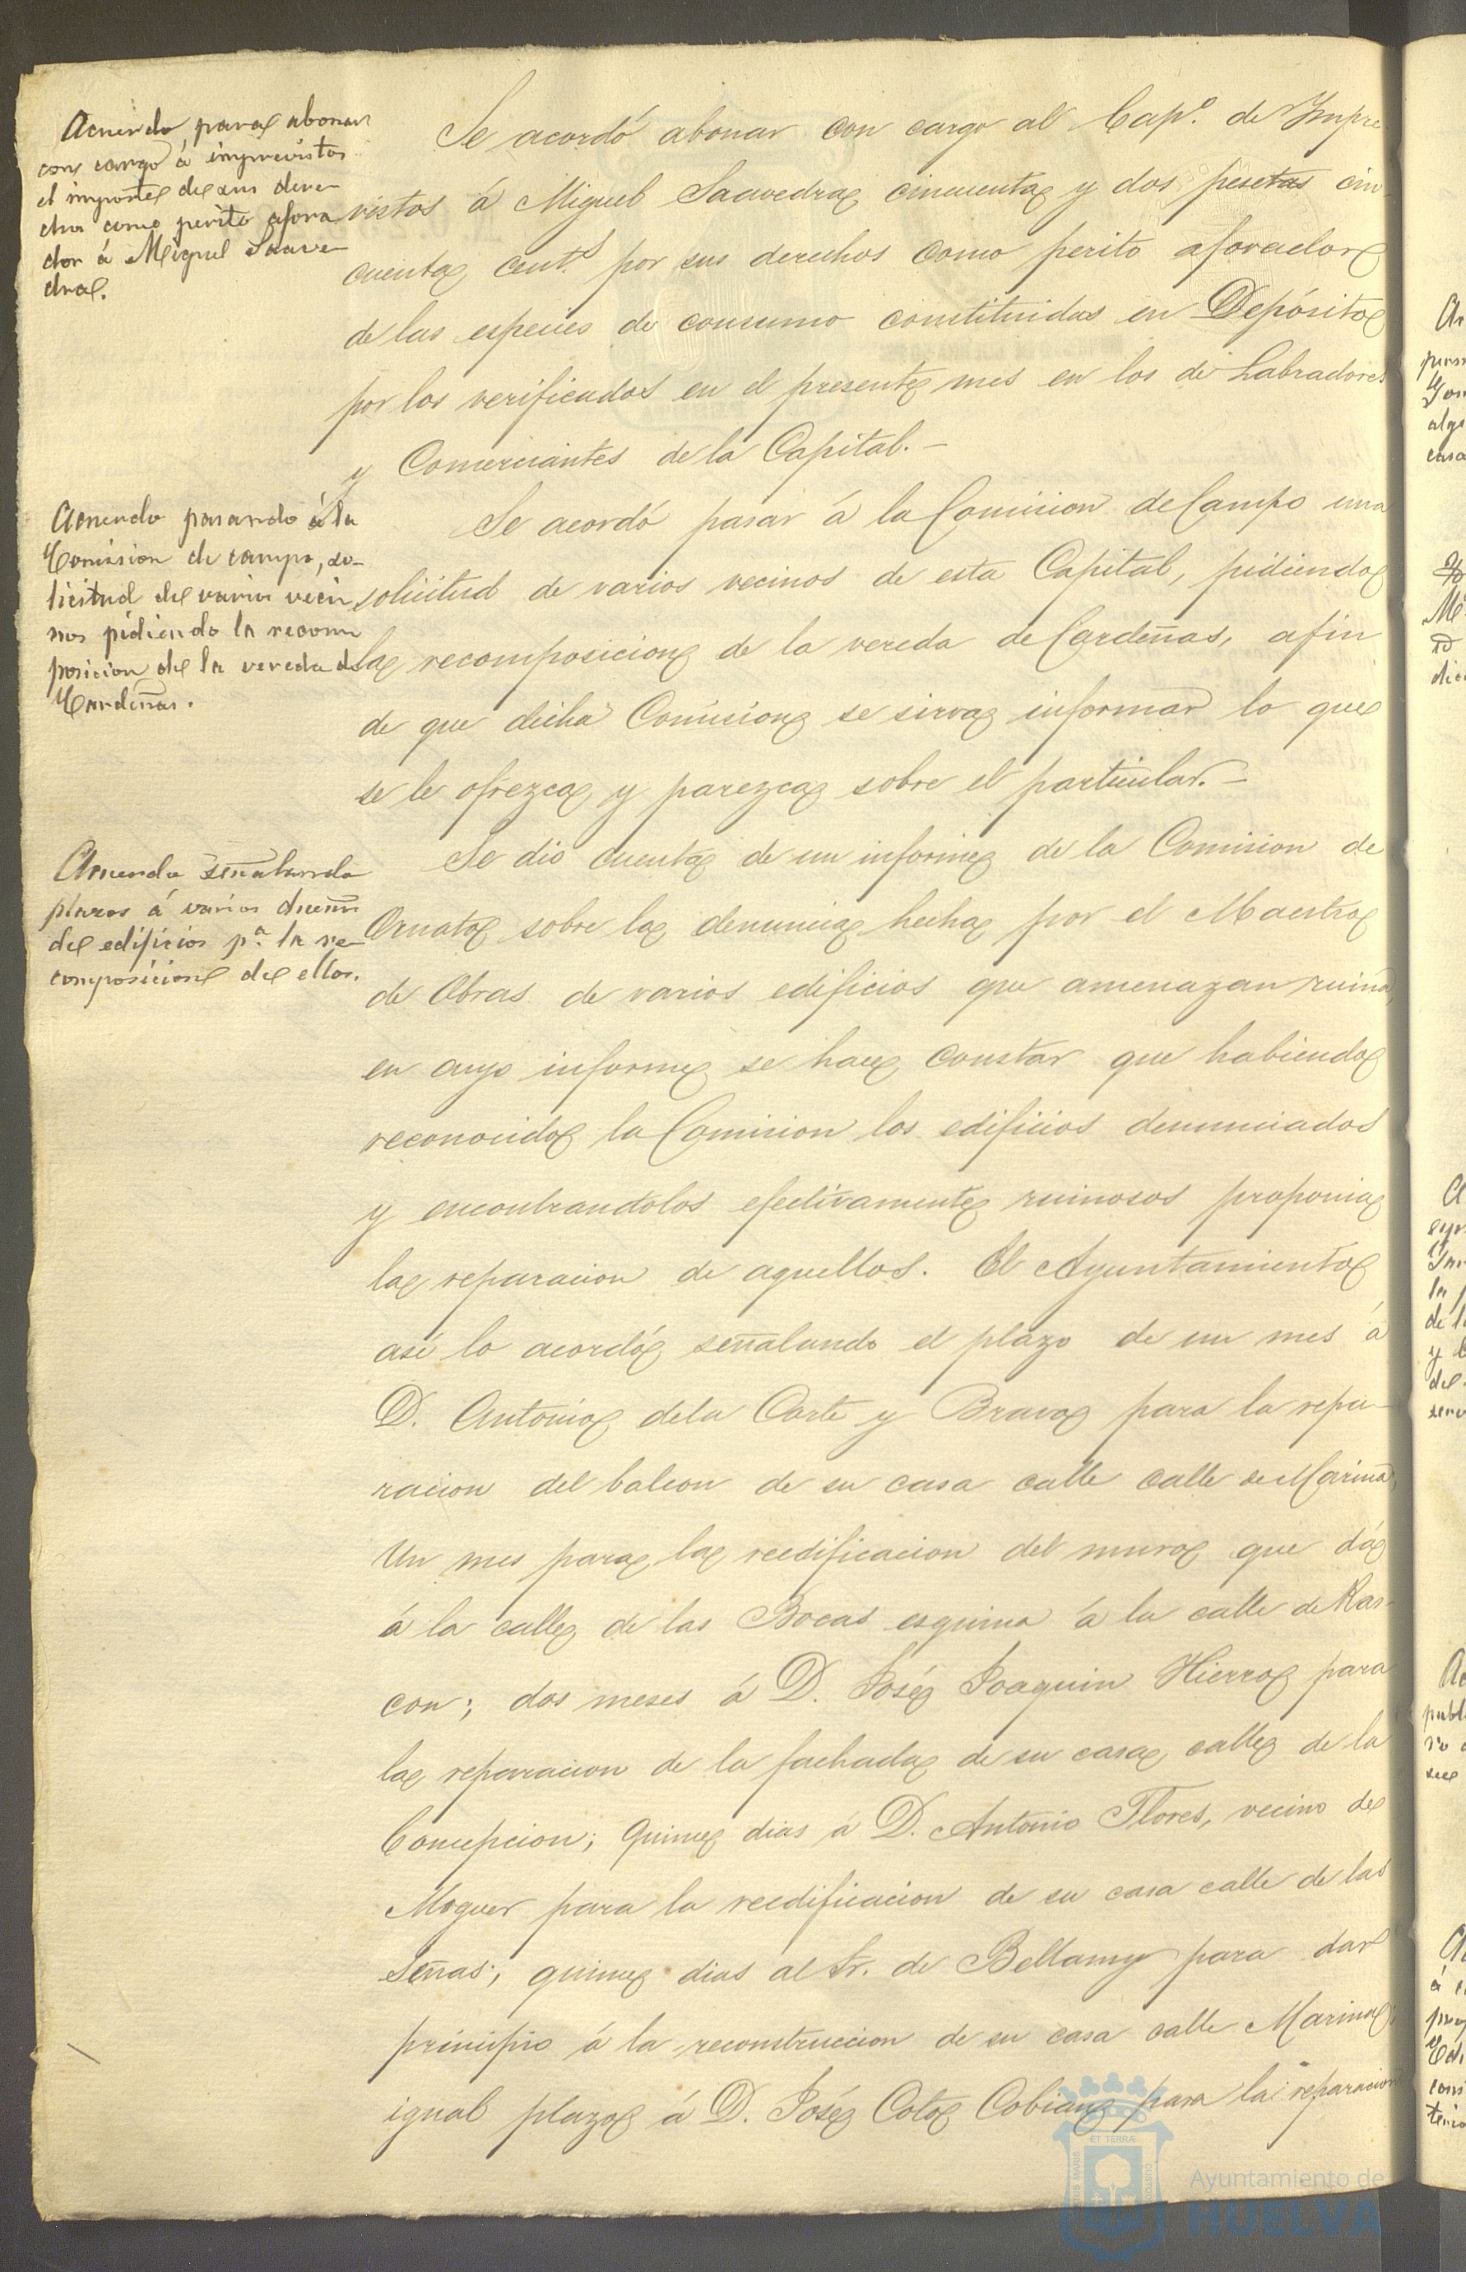 Acuerdo para abonar
con cargo á imprevistos
el importe de sus dere-
chos como perito afora
dor á Miguel Saave-
dra.
Se acordó abonar con cargo al Cap.º de Impre-
vistos á Miguel Saavedra cincuenta y dos pesetas cin-
cuenta cent.s por sus derechos como perito aforador
de las especies de consumo constituidas en Depósito
por los verificados en el presente mes en los de Labradores
y Comerciantes de la Capital.-
Acuerdo pasando á la
Comision de campo, so-
licitud de varios veci
nos pidiendo la recom
posicion de la vereda de
Cardeñas.
Se acordó pasar á la Comision de Campo una
solicitud de varios vecinos de esta Capital, pidiendo
la recomposicion de la vereda de Cardeñas, afin
de que dicha Comision se sirva informar lo que
se le ofrezca y parezca sobre el particular.-
Acuerdo señalando
plazos á varios dueños
de edificios p.ª la re-
composicion de ellos.
Se dió cuenta de un informe de la Comision de
Ornato sobre la denuncia hecha por el Maestro
de Obras de varios edificios que amenazan ruina,
en cuyo informe se hace constar que habiendo
reconocido la Comision los edificios denunciados
y encontrandolos efectivamente ruinosos proponia
la reparacion de aquellos. El Ayuntamiento
asi lo acordó señalando el plazo de un mes á
D. Antonio de la Corte y Bravo para la repa-
racion del balcon de su casa calle calle de Marina,
Un mes para la reedificacion del muro que dá
á la calle de las Bocas esquina á la calle de Ras-
con; dos meses á D. José Joaquin Hierro para
la reparacion de la fachada de su casa calle de la
Concepcion; quince dias á D. Antonio Flores, vecino de
Moguer para la reedificacion de su casa calle de las
Señas; quince dias al Sr. de Bellamy para dar
principio á la reconstruccion de su casa calle Marina;
igual plazo á D. José Coto Cobian para la reparacion
Ayuntamiento de
HUELVA